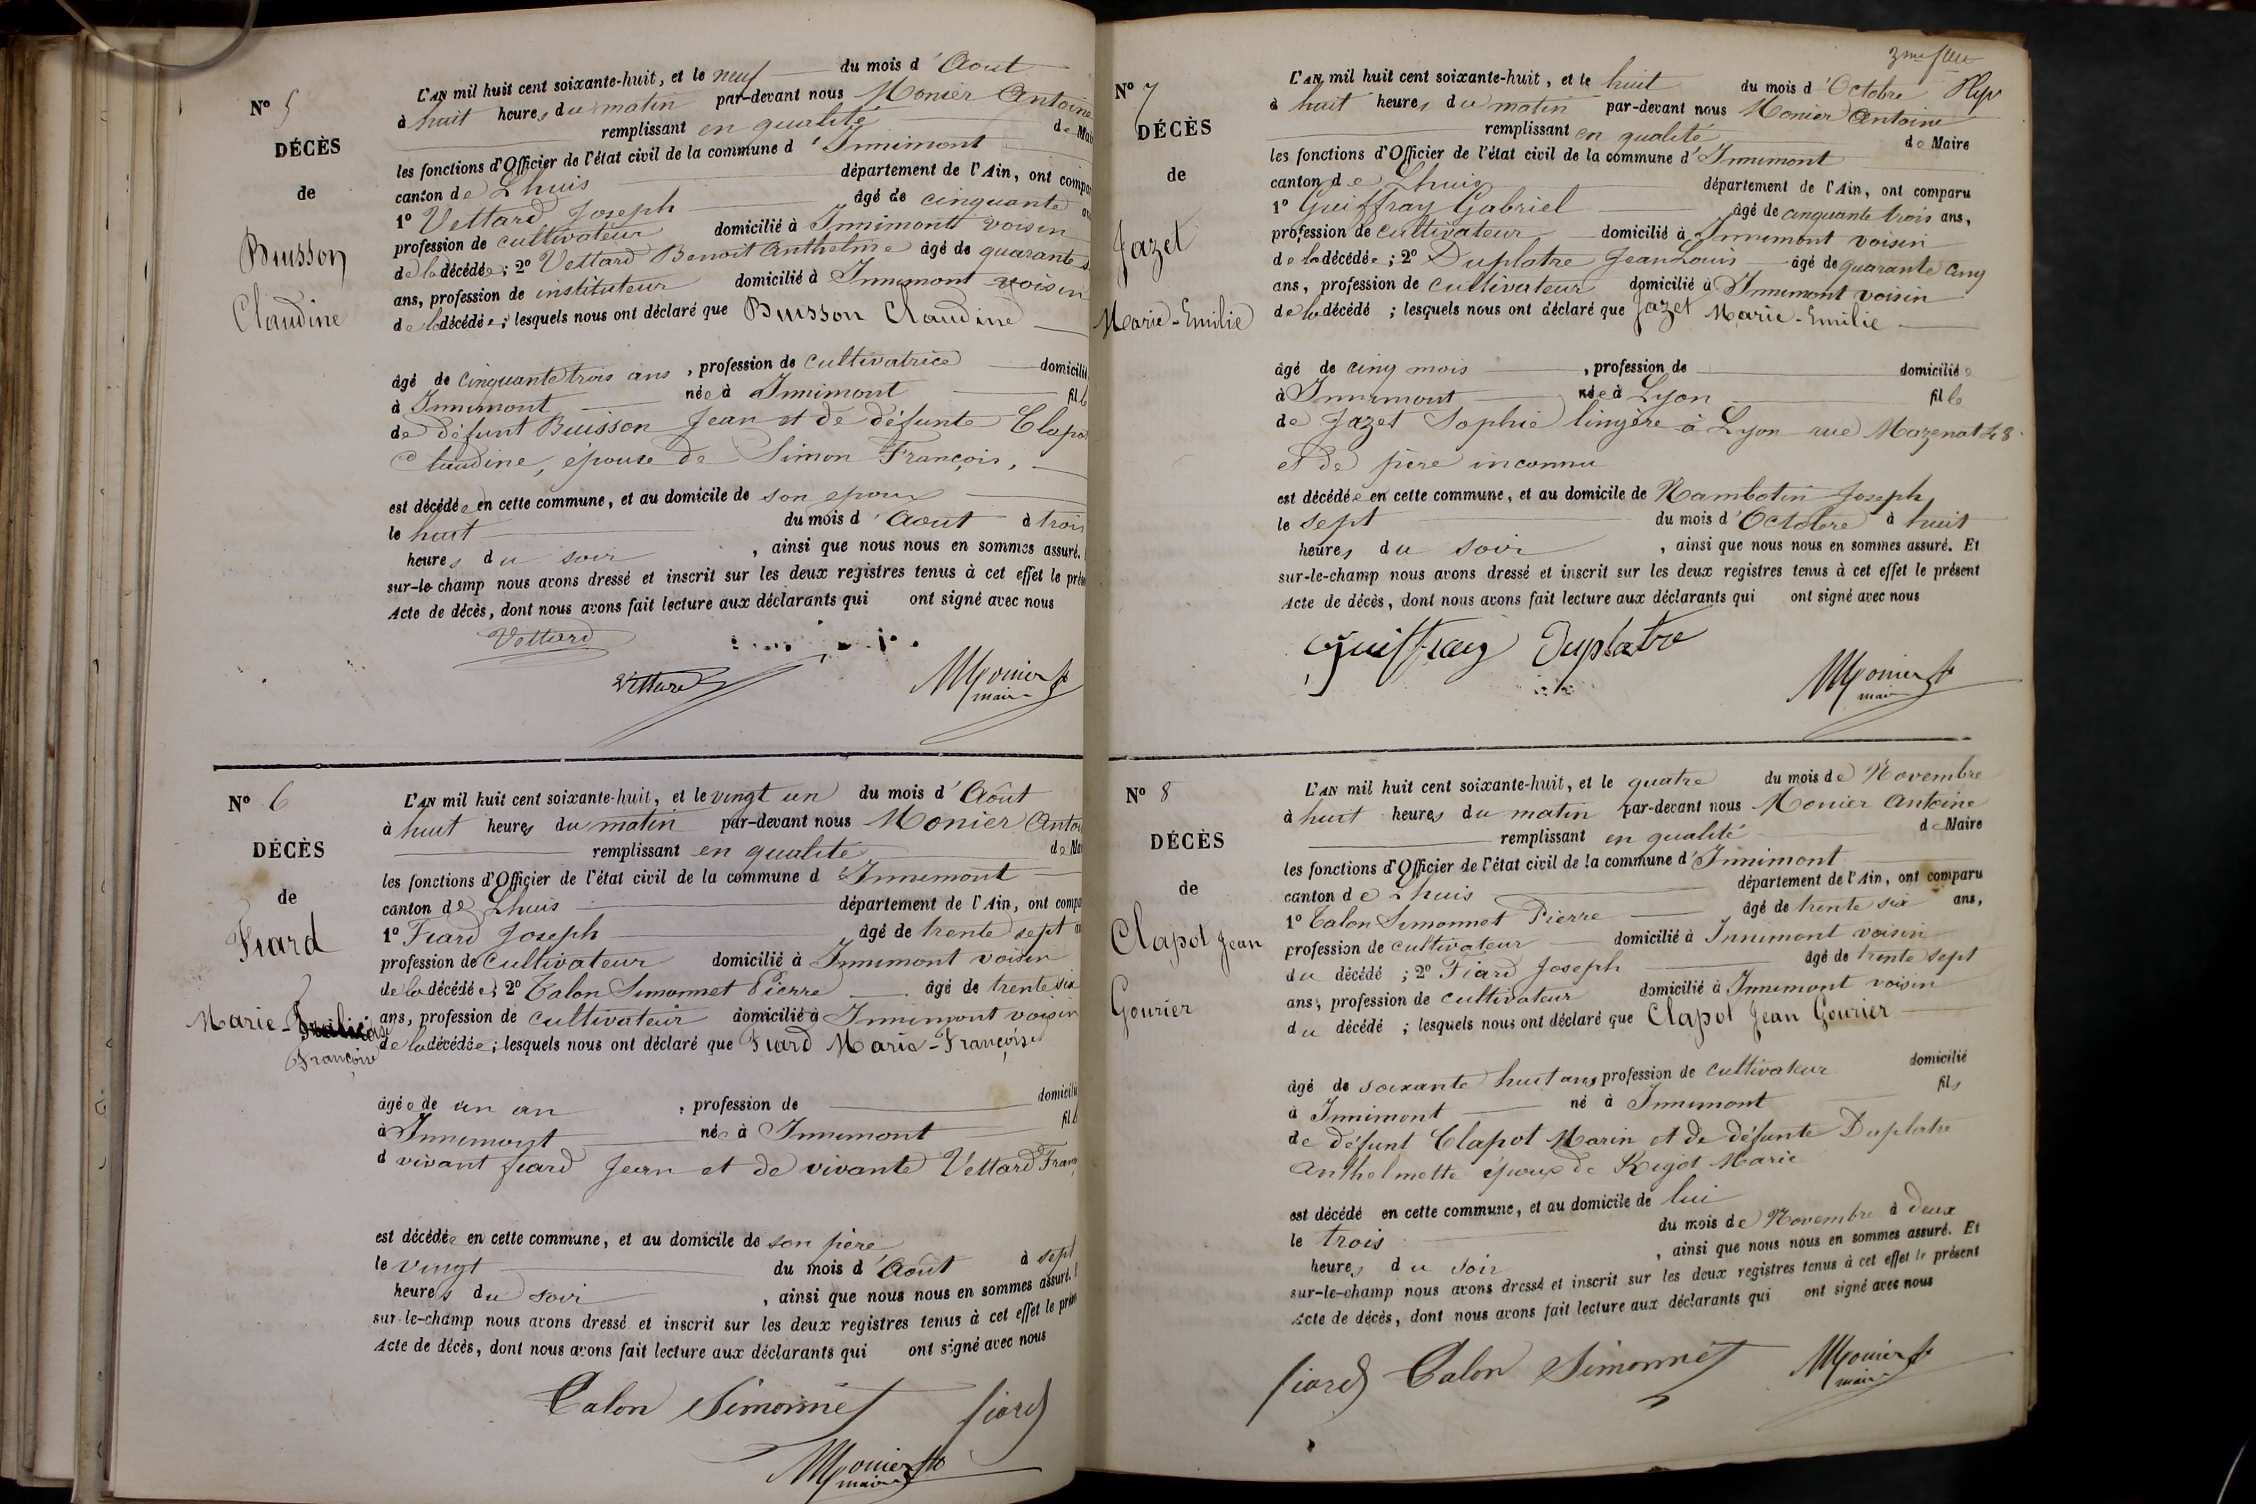 N° 5
DÉCÈS
de
Buisson
Claudine
L'AN mil huit cent soixante-huit, et le neuf du mois d'Aout
à huit heures du matin par-devant nous Monier Antoine
remplissant en qualité de Mai
les fonctions d'Officier de l'état civil de la commune d'Innimont
canton de Lhuis département de l'Ain, ont compar
1° Vettard Joseph âgé de cinquante an
profession de cultivateur domicilié à Innimont voisin
de la décédée ; 2° Vettard Benoit Anthelme âgé de quarante
ans, profession de instituteur domicilié à Innimont voisin
de la décédée ; lesquels nous ont déclaré que Buisson Claudine
âgé de cinquante trois ans , profession de cultivatrice domicilié
à Innimont née à Innimont fille
de défunt Buisson Jean et de défunte Clapo
Claudine, épouse de Simon François,
est décédée en cette commune, et au domicile de son epoux
le huit du mois d'Aout à trois
heures du soir , ainsi que nous nous en sommes assuré.
sur-le-champ nous avons dressé et inscrit sur les deux registres tenus à cet effet le prés
Acte de décès, dont nous avons fait lecture aux déclarants qui ont signé avec nous
Vettard
Vettard
Monier
maire
N° 6
DÉCÈS
de
Fiard
Marie-
Françoise
L'AN mil huit cent soixante-huit, et le vingt un du mois d'Août
à huit heures du matin par-devant nous Monier Anto
remplissant en qualité de Ma
les fonctions d'Officier de l'état civil de la commune d'Innimont
canton de Lhuis département de l'Ain, ont compa
1° Fiard Joseph âgé de trente sept a
profession de Cultivateur domicilié à Innimont voisin
de la décédée ; 2° Calon Simonnet Pierre âgé de trente six
ans, profession de cultivateur domicilié à Innimont voisin
de la décédée ; lesquels nous ont déclaré que Fiard Marie-Françoise
âgée de un an , profession de domicilié
à Innimont née à Innimont fille
d vivant fiard Jean et de vivante Vettard Fran
est décédée en cette commune, et au domicile de son père
le vingt du mois d'Août à sept
heures du soir , ainsi que nous nous en sommes assuré.
sur-le-champ nous avons dressé et inscrit sur les deux registres tenus à cet effet le prés
Acte de décès, dont nous avons fait lecture aux déclarants qui ont signé avec nous
Calon Simonnet fiard
Monier
maire
3me
N° 7
DÉCÈS
de
Jazet
Marie-Emilie
L'AN mil huit cent soixante-huit, et le huit du mois d'Octobre
à huit heures du matin par-devant nous Monier Antoine
remplissant en qualité de Maire
les fonctions d'Officier de l'état civil de la commune d'Innimont
canton de Lhuis département de l'Ain, ont comparu
1° Guiffray Gabriel âgé de cinquante trois ans,
profession de cultivateur domicilié à Innimont voisin
de la décédée ; 2° Duplatre Jean Louis âgé de quarante cinq
ans, profession de cultivateur domicilié à Innimont voisin
de la décédé ; lesquels nous ont déclaré que Jazet Marie-Emilie
âgé de cinq mois , profession de domiciliée
à Innimont née à Lyon fille
de Jazet Sophie lingère à Lyon rue Mazenot 48
et de père inconnu
est décédée en cette commune, et au domicile de Nambotin Joseph
le sept du mois d'Octobre à huit
heures du soir , ainsi que nous nous en sommes assuré. Et
sur-le-champ nous avons dressé et inscrit sur les deux registres tenus à cet effet le présent
Acte de décès, dont nous avons fait lecture aux déclarants qui ont signé avec nous
Guiffray Duplatre
Monier
maire
N° 8
DÉCÈS
de
Clapot Jean
Gourier
L'AN mil huit cent soixante-huit, et le quatre du mois de Novembre
à huit heures du matin par-devant nous Monier Antoine
remplissant en qualité de Maire
les fonctions d'Officier de l'état civil de la commune d'Innimont
canton de Lhuis département de l'Ain, ont comparu
1° Calon Simonnet Pierre âgé de trente six ans,
profession de cultivateur domicilié à Innimont voisin
du décédé ; 2° Fiard Joseph âgé de trente sept
ans, profession de cultivateur domicilié à Innimont voisin
du décédé ; lesquels nous ont déclaré que Clapot Jean Gourier
âgé de soixante huit ans profession de cultivateur domicilié
à Innimont né à Innimont fils
de défunt Clapot Marin et de défunte Duplatre
Anthelmette époux de Rigot Marie
est décédé en cette commune, et au domicile de lui
le trois du mois de Novembre à deux
heures du soir , ainsi que nous nous en sommes assuré. Et
sur-le-champ nous avons dressé et inscrit sur les deux registres tenus à cet effet le présent
Acte de décès, dont nous avons fait lecture aux déclarants qui ont signé avec nous
fiard Calon Simonnet
Monier
maire